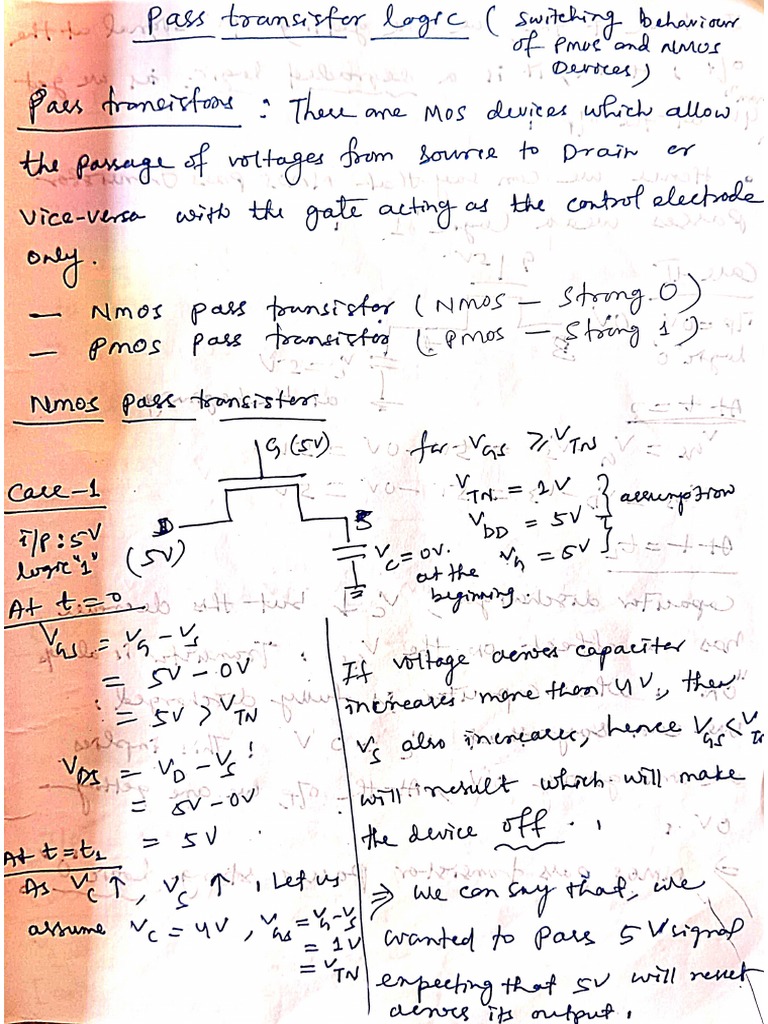 Pass transistor logic ( Switching behaviour
of PMOS and NMOS
Devices)
Pass transistors : There are MOS devices which allow
the passage of voltages from source to Drain or
vice-versa with the gate acting as the control electrode
only.
— NMOS pass transistor ( NMOS — Strong 0)
— PMOS pass transistor ( PMOS — Strong 1)
NMOS pass transistor
G (5V)
for VGS ≥ VTN
Case-1
VTN = 1V
VDD = 5V
VG = 5V
} assumption
i/p: 5V
logic "1"
D
(5V)
S
VC = 0V.
at the
beginning.
At t=0,
VGS = VG - VS
= 5V - 0V
= 5V > VTN
VDS = VD - VS
= 5V - 0V
= 5V
At t=t1
As VC ↑, VS ↑, Let us
assume VC = 4V, VGS = VG-VS
= 1V
= VTN
If voltage across capacitor
increases more than 4V, then
VS also increases, hence VGS < VTN
will result which will make
the device off.
⇒ we can say that, we
wanted to pass 5V signal
expecting that 5V will
across its output.